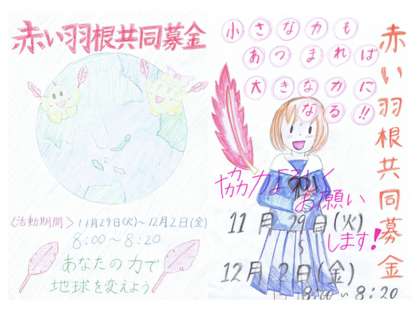 赤い羽根共同募金
<活動期間> 11月29日(火)～12月2日(金)
8:00～8:20
あなたの力で
地球を変えよう
小さな力も
あつまれば
大きな力に
なる!!
赤い羽根共同募金
協力よろしく
お願い
します!
11月29日(火)
～
12月2日(金)
8:00～8:20